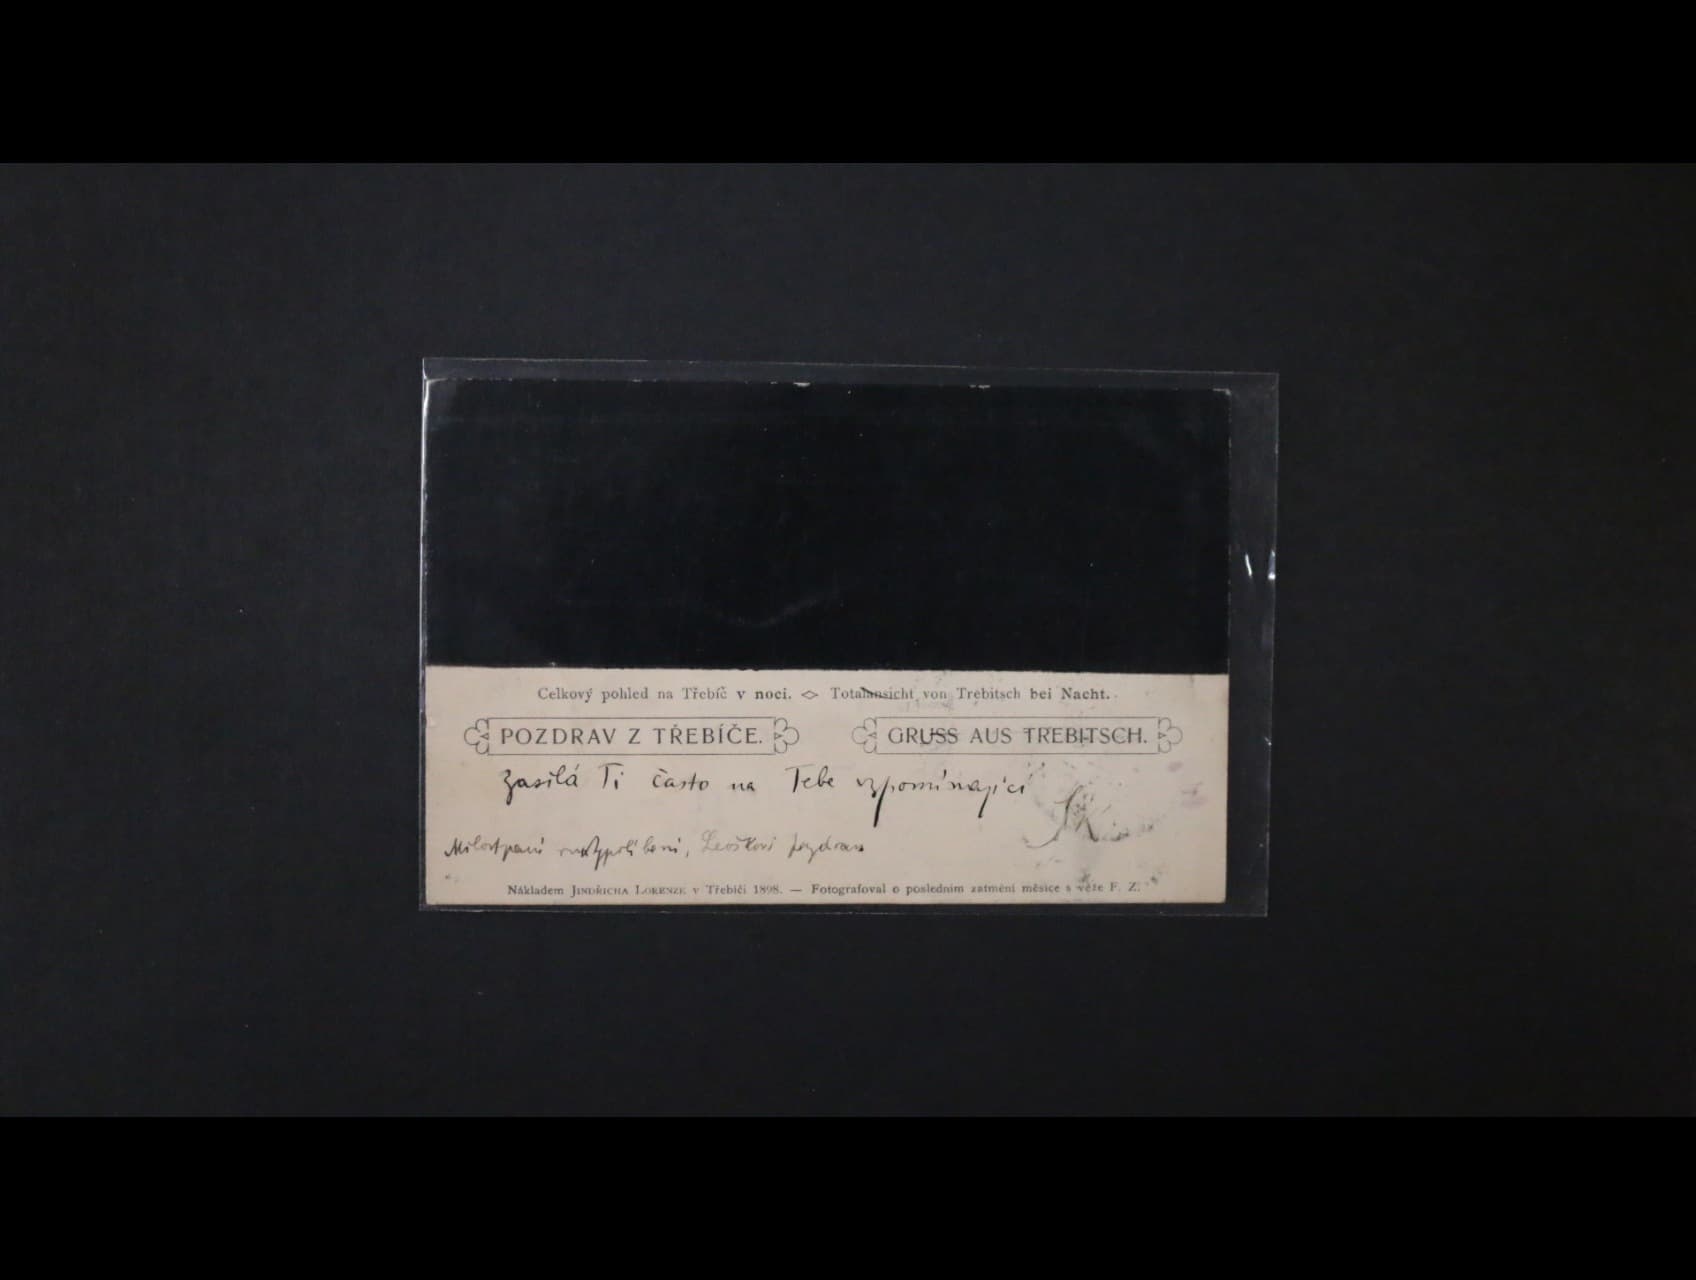 Celkový pohled na Třebíč v noci. Totalansicht von Trebitsch bei Nacht.
POZDRAV Z TŘEBÍČE. GRUSS AUS TREBITSCH.
Zasílá Ti často na Tebe vzpomínající
Milostpaní rukypolíbení, Leoškovi pozdrav
Nákladem JINDŘICHA LORENZE v Třebíči 1898. — Fotografoval o posledním zatmění měsíce s věže F. Z.